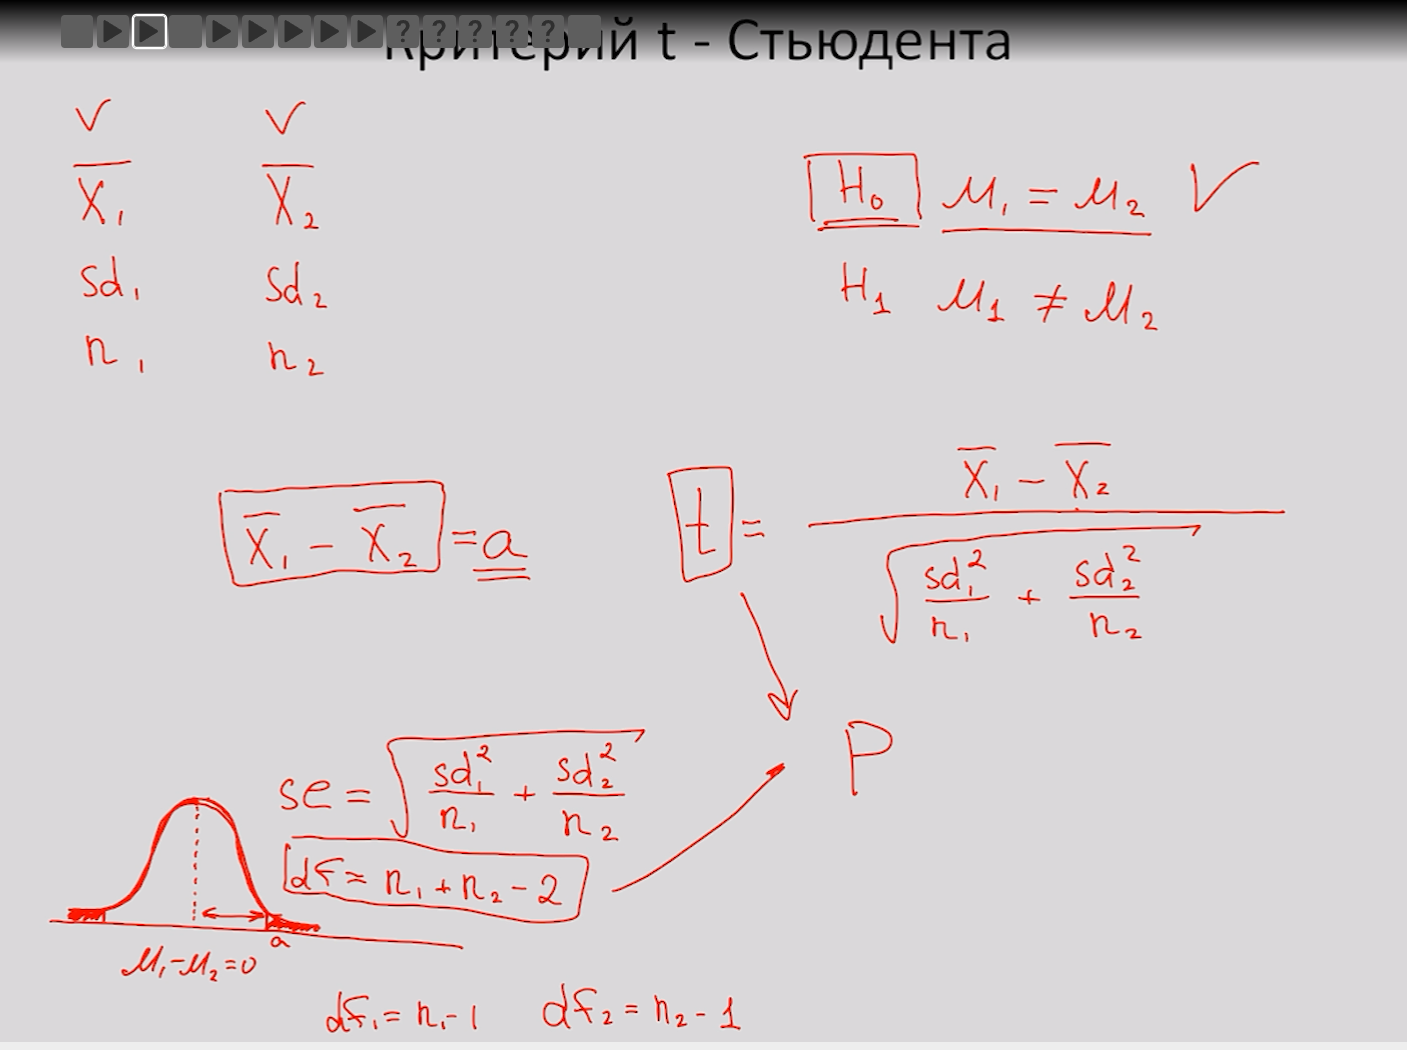 Критерий t - Стьюдента
V V
X̅₁ X̅₂
sd₁ sd₂
n₁ n₂
H₀ M₁ = M₂ V
H₁ M₁ ≠ M₂
X̅₁ - X̅₂ = a
t = (X̅₁ - X̅₂) / √(sd₁²/n₁ + sd₂²/n₂)
P
se = √(sd₁²/n₁ + sd₂²/n₂)
df = n₁ + n₂ - 2
a
M₁-M₂=0
df₁ = n₁-1 df₂ = n₂-1